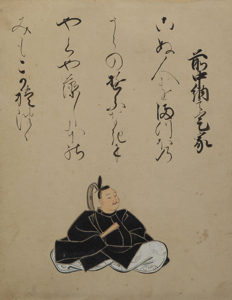 前中納言定家
こぬ人をまつほの
うらの夕なきに
やくや藻しほの
みもこかれつゝ